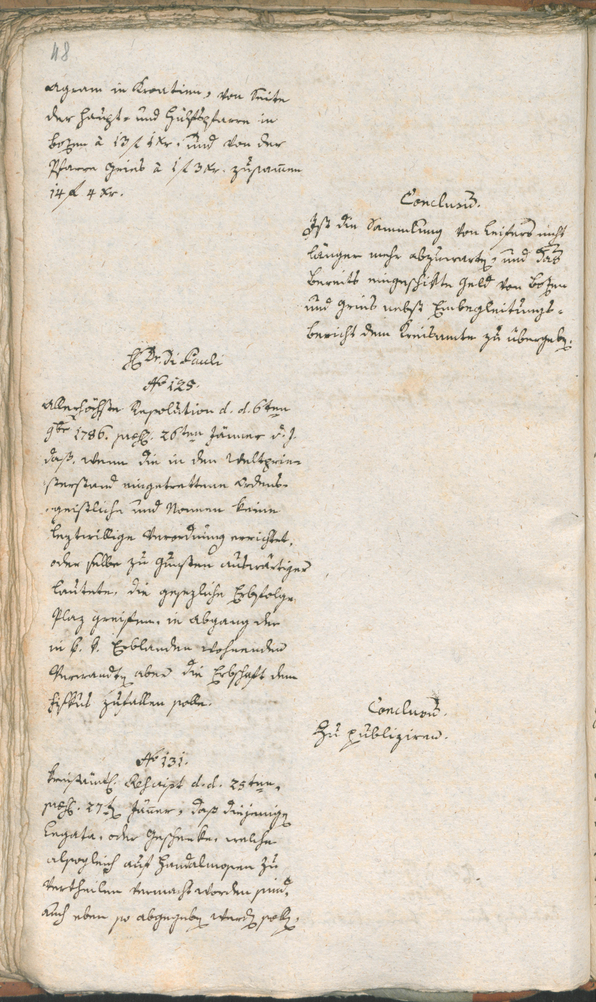 48
Agram in Kroatien, von Seite
der Haupt- und Hülfspfarre in
Bozen à 13 f 1 Kr. und von der
Pfarre Gries à 1 f 3 Kr. zusammen
14 f 4 Kr.
Conclusum.
Ist die Sammlung von Leifers nicht
länger mehr abzuwarten, und das
bereits eingeschikte Geld von Bozen
und Gries nebst Einbegleitungs-
bericht dem Kreisamte zu übergeben.
H Dr. Di Pauli
No 125.
Allerhöchste Resolution d. d. 6ten
9br 1786. 26ten Jänner d. J.
daß, wenn die in den Weltprie-
sterstand eingetrettene Ordens-
geistliche und Nonnen keine
leztwillige Verordnung errichtet,
oder selbe zu Gunsten auswärtiger
lautete, die gesezliche Erbfolge
Plaz greiffen, in Abgang der
in k. k. Erblanden wohnenden
Verwandten aber die Erbschaft dem
Fiskus zufallen solle.
Conclusum.
Zu publiziren.
No 131.
Kreisämtl. Rescript d. d. 25ten,
27ten Jänner, daß diejenige
Legata, oder Geschenke, welche
alsogleich auf Handalmosen zu
vertheilen vermacht worden sind,
auch eben so abgegeben werden sollen,